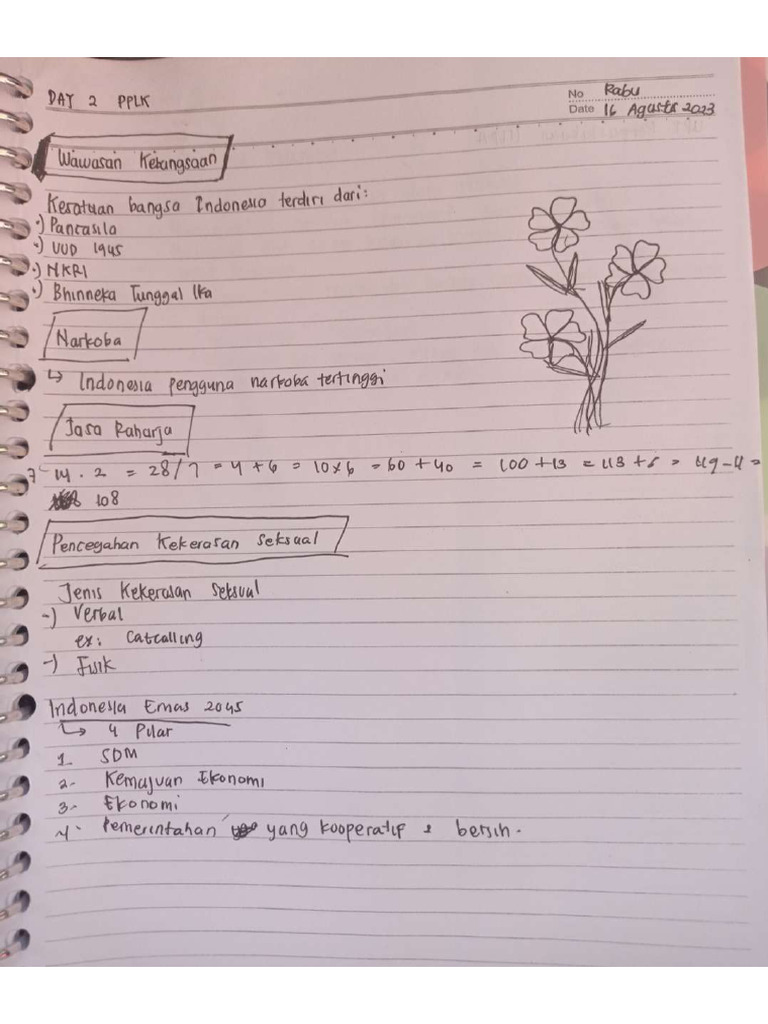 DAY 2 PPLK
No Rabu
Date 16 Agustus 2023
Wawasan Kebangsaan
Kesatuan bangsa Indonesia terdiri dari:
·) Pancasila
·) UUD 1945
·) NKRI
·) Bhinneka Tunggal Ika
Narkoba
↳ Indonesia pengguna narkoba tertinggi
Jasa Raharja
7 14 . 2 = 28/7 = 4 + 6 = 10 x 6 = 60 + 40 = 100 + 13 = 113 + 6 = 119 - 11 =
108
Pencegahan Kekerasan Seksual
Jenis Kekerasan Seksual
-) Verbal
ex: Catcalling
-) Fisik
Indonesia Emas 2045
↳ 4 Pilar
1. SDM
2. Kemajuan Ekonomi
3. Ekonomi
4. Pemerintahan yang kooperatif & bersih.